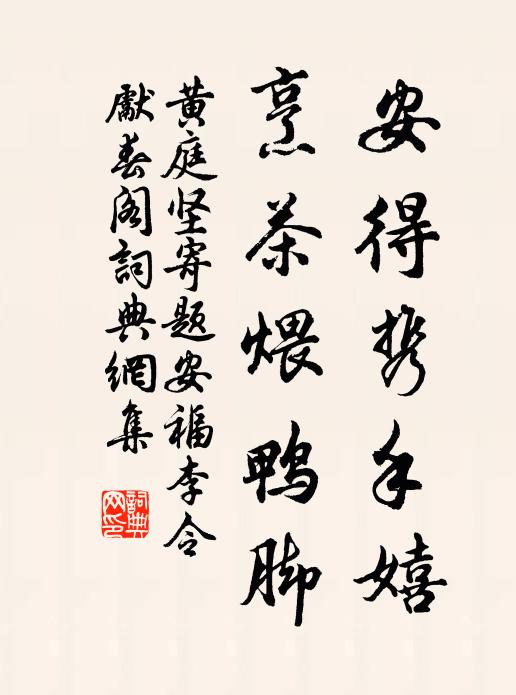 安得携手嬉
烹茶煨鸭脚
黄庭坚寄题安福李令
献春阁詞典網集
詞典网印